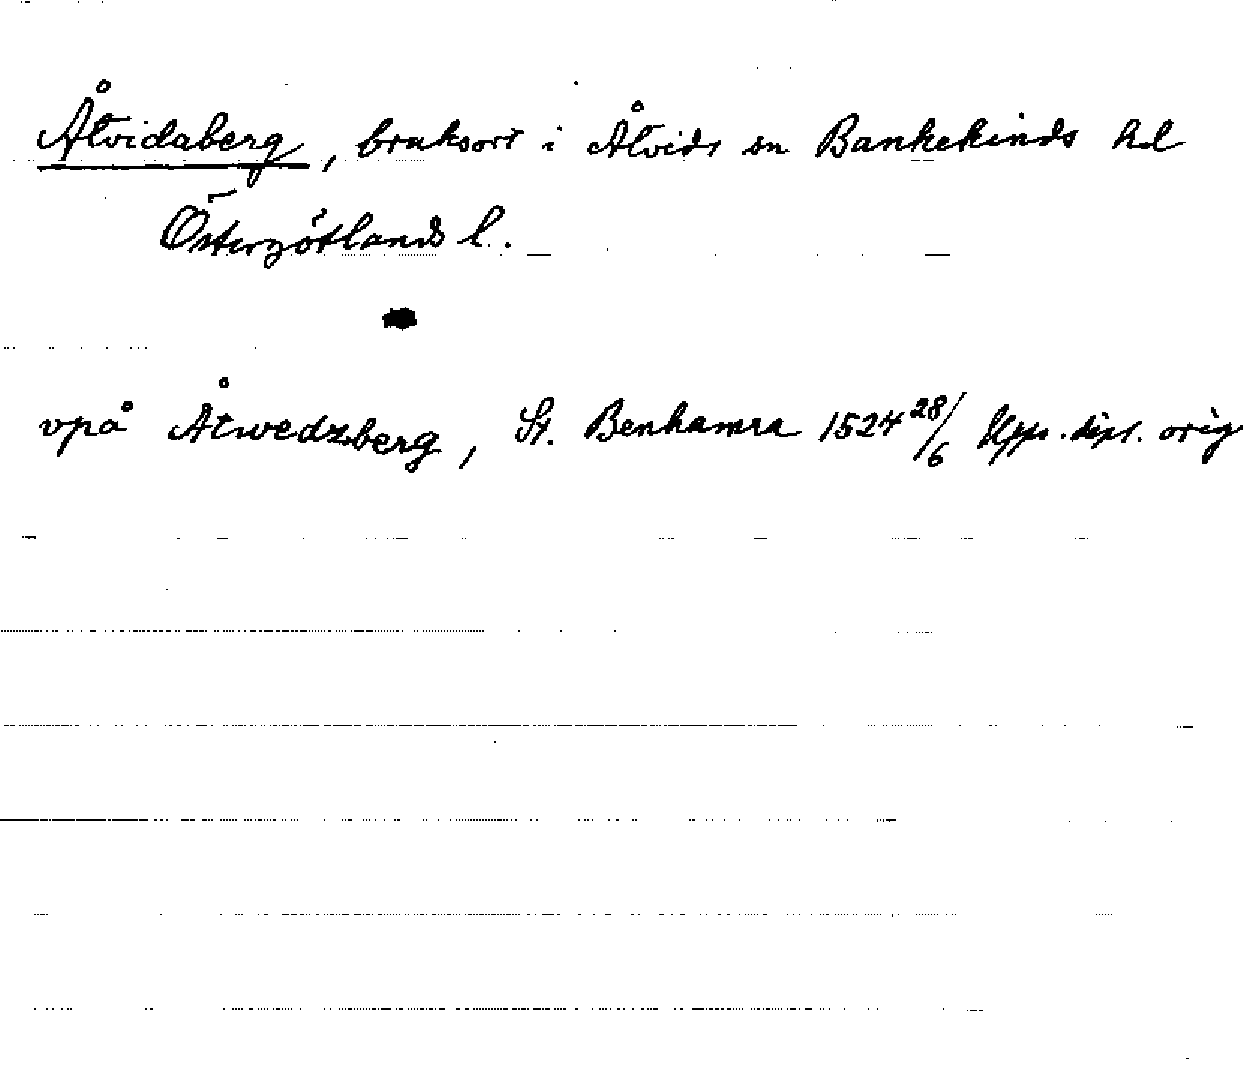 Åtvidaberg, bruksort i Åtvids sn Bankekinds hd
Östergötlands l.
vpå Åtwedzberg, St. Benhamra 1524 28/6 Upps. dipl. orig